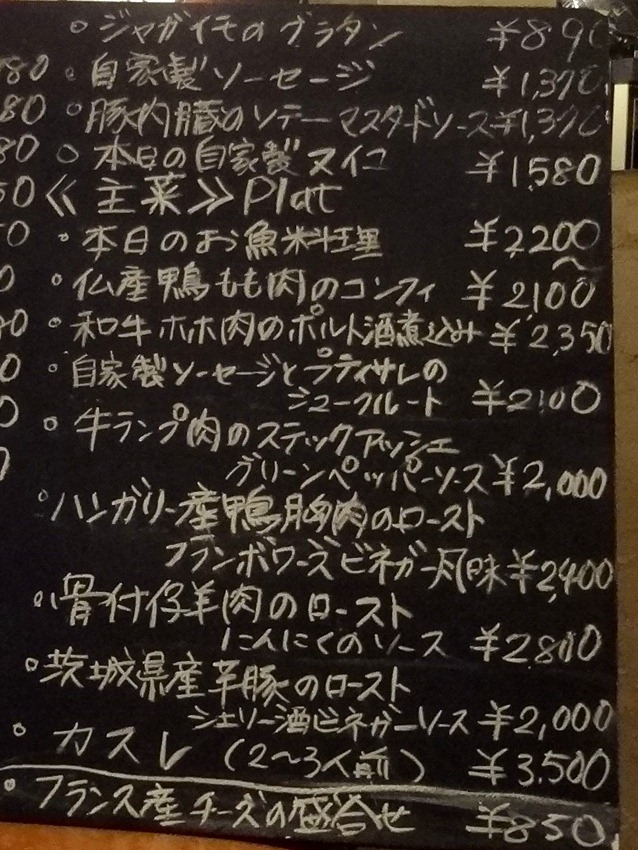 。ジャガイモのグラタン ¥890
。自家製ソーセージ ¥1,370
。豚内臓のソテーマスタードソース ¥1,370
。本日の自家製ヌイユ ¥1,580
≪主菜≫ Plat
。本日のお魚料理 ¥2,200〜
。仏産鴨もも肉のコンフィ ¥2,100
。和牛ホホ肉のポルト酒煮込み ¥2,350
。自家製ソーセージとプティサレの
シュークルート ¥2,100
。牛ランプ肉のステックアッシェ
グリーンペッパーソース ¥2,000
。ハンガリー産鴨胸肉のロースト
フランボワーズビネガー風味 ¥2,400
。骨付仔羊肉のロースト
にんにくのソース ¥2,800
。茨城県産芋豚のロースト
シェリー酒ビネガーソース ¥2,000
。カスレ (2〜3人前) ¥3,500
。フランス産チーズの盛合せ ¥850